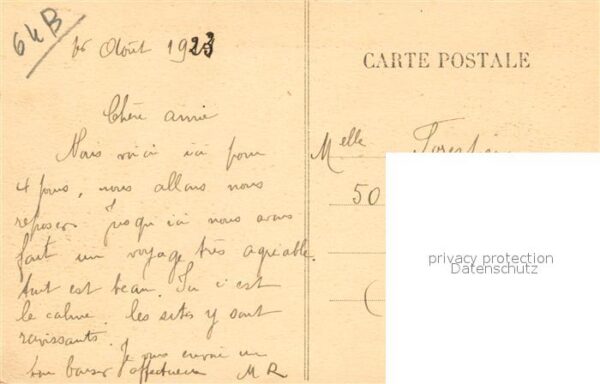 64B
16 Août 1923
Chère amie
Nous voici ici pour
4 jours, nous allons nous
reposer. Jusqu'ici nous avons
fait un voyage très agréable.
tout est beau. Ici c'est
le calme. les sites y sont
ravissants. Je vous envoie un
bon baiser affectueux M R
CARTE POSTALE
Melle
50
privacy protection
Datenschutz